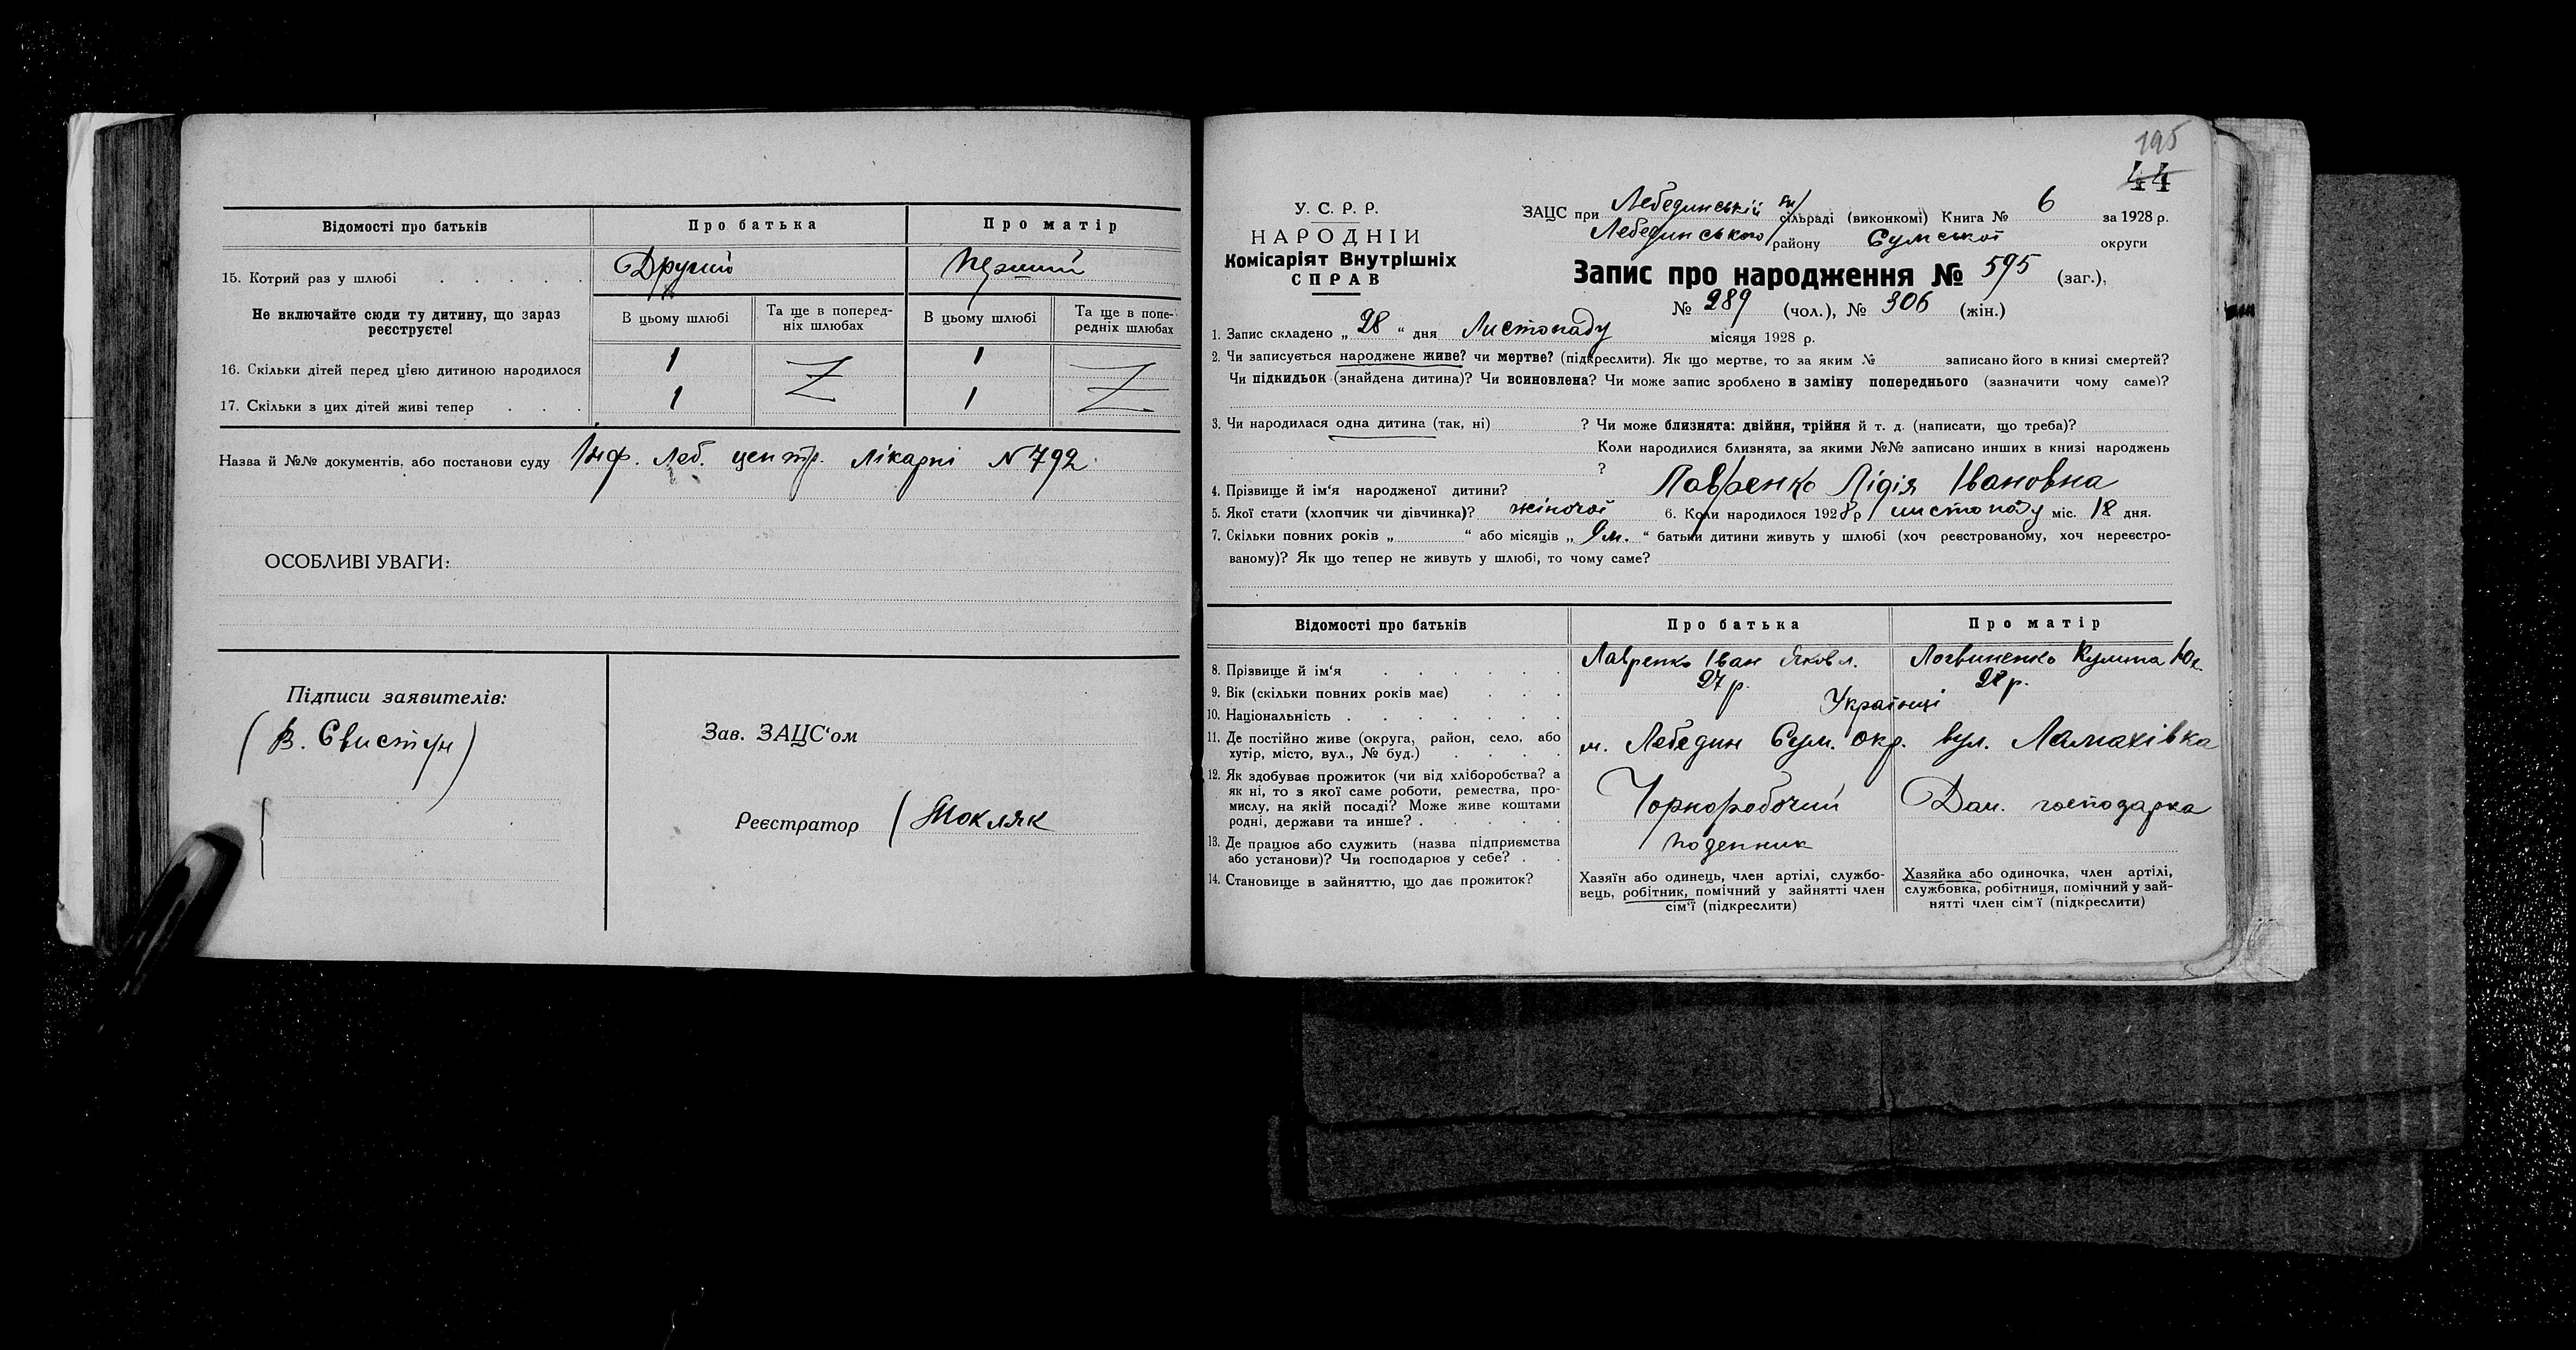 Відомості про батьків
Про батька
Про матір
15. Котрий раз у шлюбі
Другий
Перший
Не включайте сюди ту дитину, що зараз реєструєте!
В цьому шлюбі
Та ще в попередніх шлюбах
В цьому шлюбі
Та ще в попередніх шлюбах
16. Скільки дітей перед цією дитиною народилося
1
1
17. Скільки з цих дітей живі тепер
1
1
Назва й №№ документів, або постанови суду Інф. Леб. центр. Лікарні N 792
ОСОБЛИВІ УВАГИ:
Підписи заявителів:
(В. Свистун)
Зав. ЗАЦС'ом
Реєстратор (Токляк
195
44
У. С. Р. Р.
НАРОДНІЙ
Комісаріят Внутрішніх
СПРАВ
ЗАЦС при Лебединській сільраді (виконкомі) Книга № 6 за 1928 р.
Лебединського району Сумської округи
Запис про народження № 595 (заг.),
№ 289 (чол.), № 306 (жін.)
1. Запис складено „ 28 “ дня Листопаду місяця 1928 р.
2. Чи записується народжене живе? чи мертве? (підкреслити). Як що мертве, то за яким № записано його в книзі смертей?
Чи підкидьок (знайдена дитина)? Чи всиновлена? Чи може запис зроблено в заміну попереднього (зазначити чому саме)?
3. Чи народилася одна дитина (так, ні) ? Чи може близнята: двійня, трійня й т. д. (написати, що треба)?
Коли народилися близнята, за якими №№ записано инших в книзі народжень
?
4. Прізвище й ім'я народженої дитини? Лавренко Лідія Івановна
5. Якої статі (хлопчик чи дівчинка)? жіночої 6. Коли народилося 1928 р листопаду міс. 18 дня.
7. Скільки повних років „ “ або місяців „ 9 м. “ батьки дитини живуть у шлюбі (хоч реєстрованому, хоч нереєстрованому)? Як що тепер не живуть у шлюбі, то чому саме?
Відомості про батьків
Про батька
Про матір
8. Прізвище й ім'я
Лавренко Іван Яковл.
Логвиненко
9. Вік (скільки повних років має)
27 р.
28 р.
10. Національність
Українці
11. Де постійно живе (округа, район, село, або хутір, місто, вул., № буд.)
м. Лебедин Сум. окр. вул. Ламахівка
12. Як здобуває прожиток (чи від хліборобства? а як ні, то з якої саме роботи, ремества, промислу, на якій посаді? Може живе коштами родні, держави та инше?
Чорноробочий
Дом. господарка
13. Де працює або служить (назва підприємства або установи)? Чи господарює у себе?
поденник
14. Становище в зайняттю, що дає прожиток?
Хазяїн або одинець, член артілі, службовець, робітник, помічний у зайнятті член сім'ї (підкреслити)
Хазяйка або одиночка, член артілі, службовка, робітниця, помічний у зайнятті член сім'ї (підкреслити)